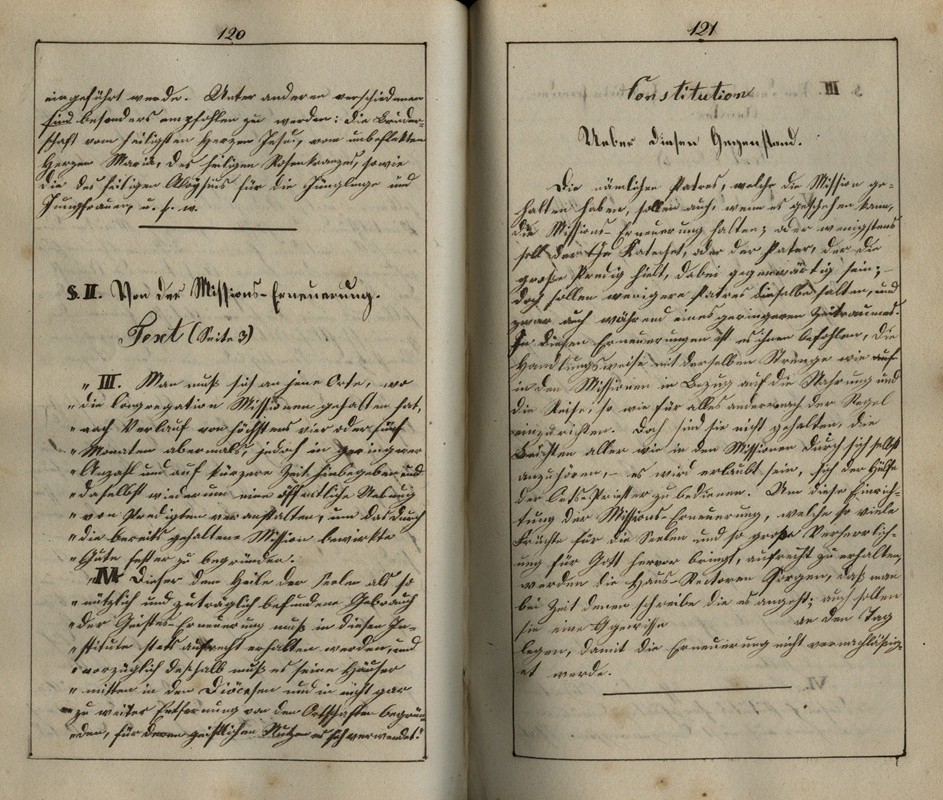 120
eingeführt werde. Unter anderen verschiedenen
sind besonders empfohlen zu werden: die Bruder-
schaft vom heiligsten Herzen Jesu, vom unbefleckten
Herzen Mariä, des heiligen Rosenkranzes, sowie
die des heiligen Aloysius für die Jünglinge und
Jungfrauen, u. s. w.
§. II. Von der Missions-Erneuerung.
Text (Seite 3)
„ III. Man muß sich an jene Orte, wo
„ die Congregation Missionen gehalten hat,
„ nach Verlauf von höchstens vier oder fünf
„ Monaten abermals, jedoch in geringerer
„ Anzahl und auf kürzere Zeit hinbegeben und
„ daselbst wiederum eine öffentliche Übung
„ von Predigten veranstalten, um das durch
„ die bereits gehaltene Mission bewirkte
„ Gute fester zu begründen.
„ IV. Dieser dem Heile der Seelen als so
„ nützlich und zuträglich befundene Gebrauch
„ der Geistes-Erneuerung muß in diesem In-
„ stitute stets aufrecht erhalten werden, und
„ vorzüglich deshalb muß es seine Häuser
„ mitten in den Diöcesen und in nicht gar
„ zu weiter Entfernung von den Ortschaften begrün-
„ den, für deren geistlichen Nutzen es sich verwendet.“
121
Constitution
Ueber diesen Gegenstand.
Die nämlichen Patres, welche die Mission ge-
halten haben, sollen auch, wenn es geschehen kann,
die Missions-Erneuerung halten; oder wenigstens
soll der Katechet, oder der Pater, der die
großen Predig hielt, dabei gegenwärtig sein; –
doch sollen wenigere Patres dieselbe halten, und
zwar auch während eines geringeren Zeitraumes.
In diesen Erneuerungen ist es ihnen befohlen, die
Handlungsweise mit derselben Strenge wie auch
in den Missionen in Bezug auf die Nahrung und
die Reise, so wie für alles andere nach der Regel
einzurichten. Doch sind sie nicht gehalten, die
Beichten aller wie in den Missionen durch sich selbst
anzuhören, – es wird erlaubt sein, sich der Hülfe
der Orts-Priester zu bedienen. Um diese Einrich-
tung der Missions-Erneuerung, welche so viele
Früchte für die Seelen und so große Verherrlich-
ung für Gott hervor bringt, aufrecht zu erhalten,
werden die Haus-Rectoren Sorgen, daß man
bei Zeit denen schreibe die es angeht; auch sollen
sie eine den Tag
legen, damit die Erneuerung nicht vernachläßig-
et werde.